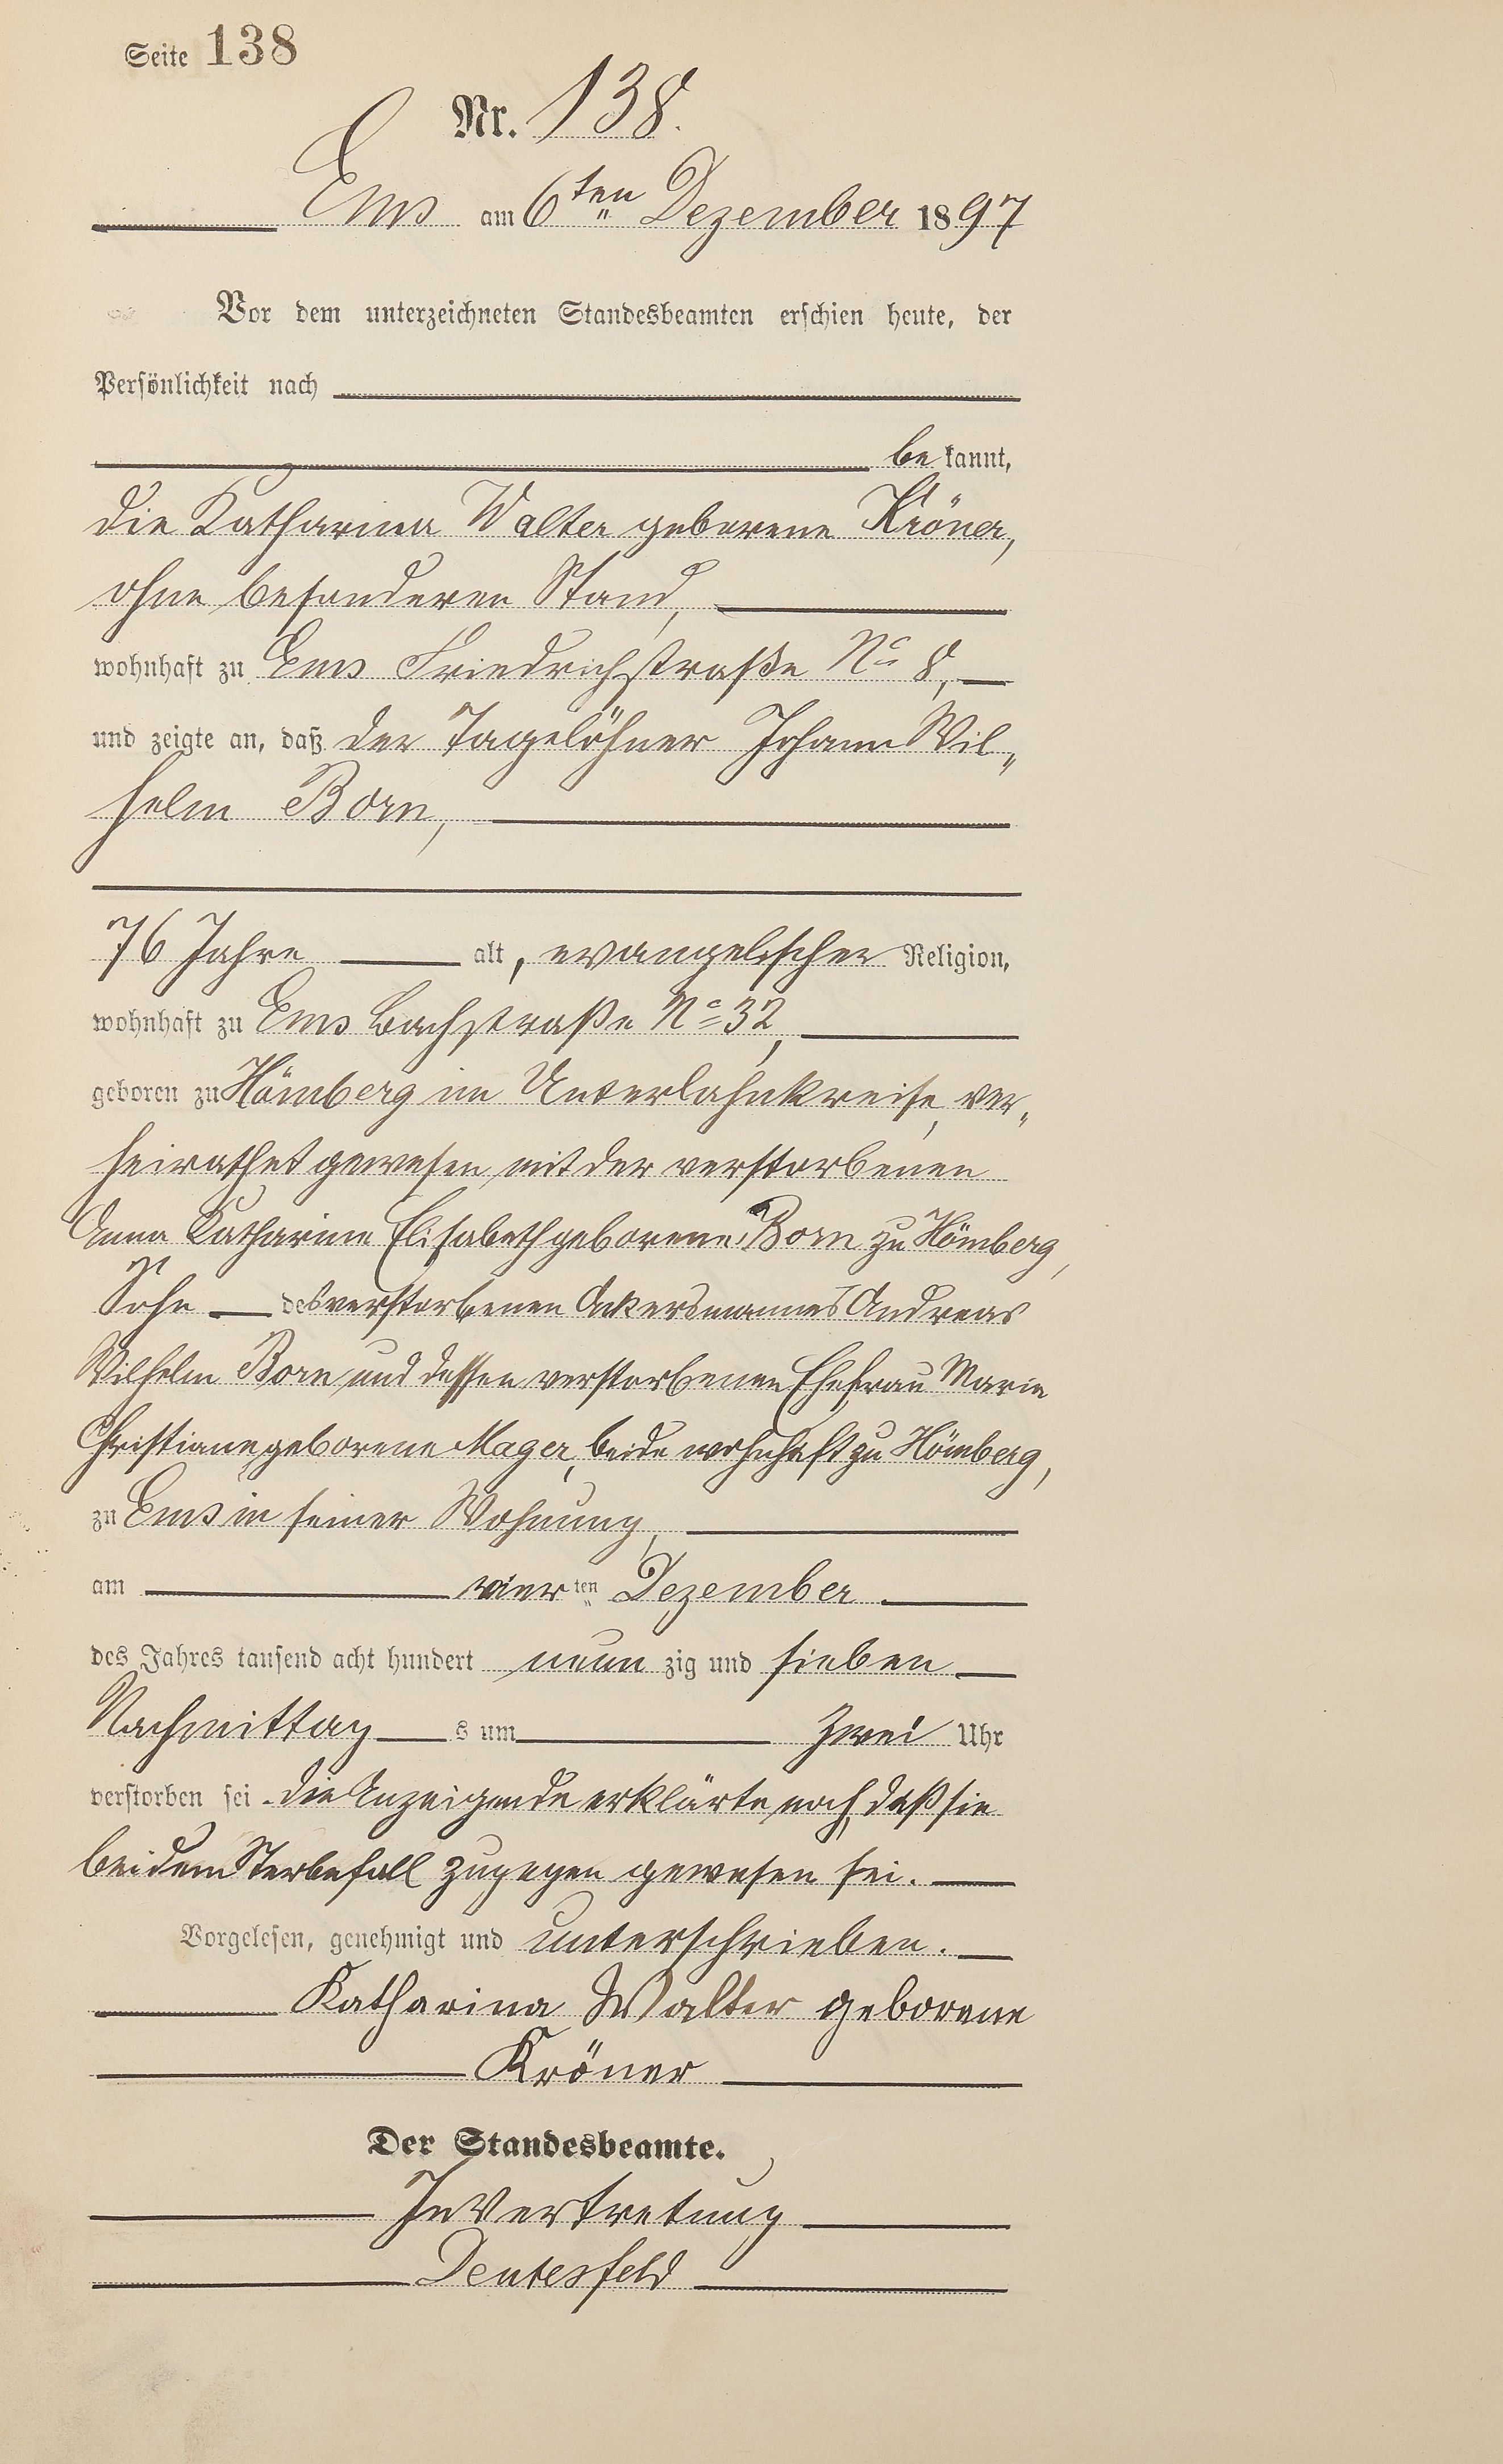 Seite 138
Nr. 138.
Ems am 6ten Dezember 1897
Vor dem unterzeichneten Standesbeamten erschien heute, der
Persönlichkeit nach
bekannt,
die Katharina Walter geborene Kröner,
ohne besonderen Stand,
wohnhaft zu Ems Friedrichstraße No 8,
und zeigte an, daß der Tagelöhner Johann Wil„
helm Born,
76 Jahre alt, evangelischer Religion,
wohnhaft zu Ems Bachstraße No 32,
geboren zu Hömberg im Unterlahnkreise, ver„
heirathet gewesen mit der verstorbenen
Anna Katharine Elisabeth geborene Born zu Hömberg,
Sohn des verstorbenen Ackersmannes Andreas
Wilhelm Born und dessen verstorbenen Ehefrau Marie
Christiane geborene Mager, beide wohnhaft zu Hömberg,
zu Ems in seiner Wohnung,
am vierten Dezember
des Jahres tausend acht hundert neunzig und sieben
Nachmittags um zwei Uhr
verstorben sei. Die Anzeigende erklärte noch, daß sie
bei dem Sterbefall zugegen gewesen sei.
Vorgelesen, genehmigt und unterschrieben.
Katharina Walter geborene
Kröner
Der Standesbeamte.
In Vertretung
Deutesfeld